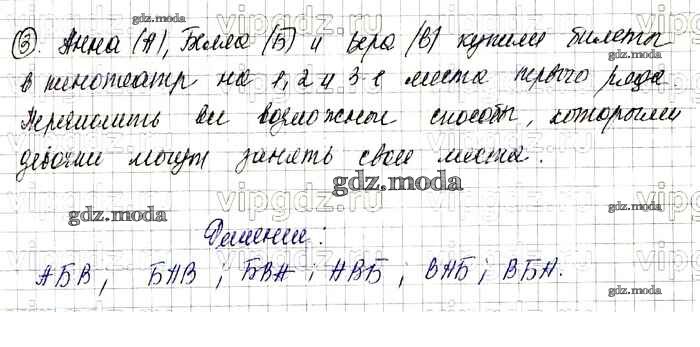 ③. Анна (А), Белла (Б) и Вера (В) купили билеты
в кинотеатр на 1, 2 и 3-е места первого ряда
Перечислить все возможные способы, которыми
девочки могут занять свои места.
gdz.moda
Решение:
АБВ; БАВ; БВА; АВБ; ВАБ; ВБА.
vipgdz.ru
gdz.moda